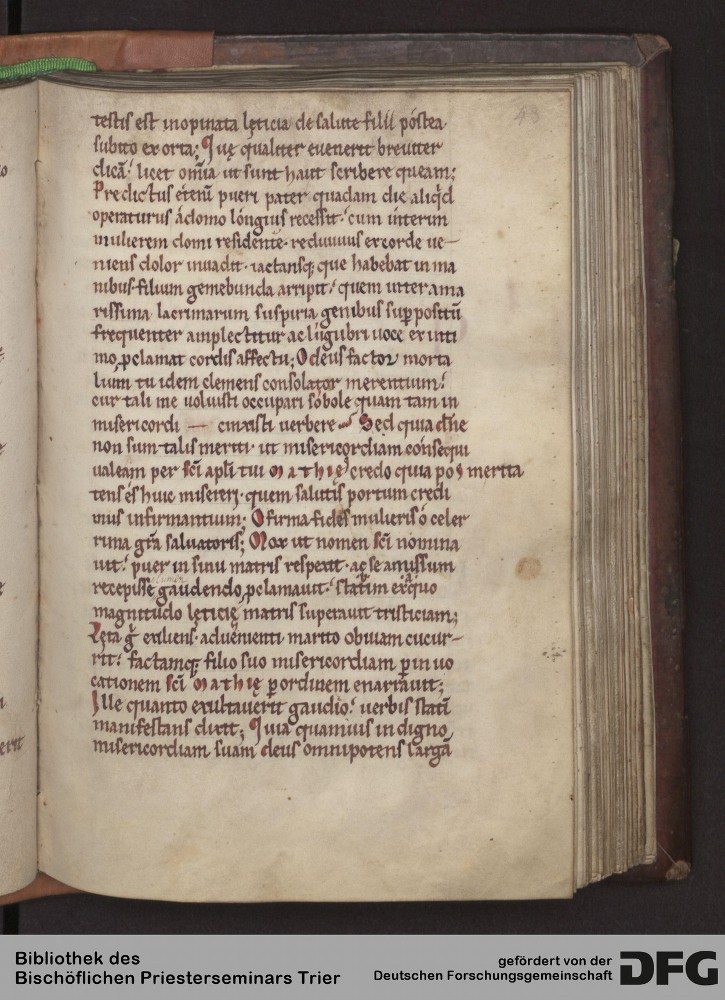 43
testis est inopinata lęticia de salute filii postea
subito exorta; Quę qualiter evenerit breviter
dicā. licet om̄ia ut sunt haut scribere queam;
Predictus etenī pueri pater quadam die aliq̇d
operaturus a domo longius recessit. cum interim
mulierem domi residente. redivivus ex corde ve-
niens dolor invadit. iactansq; que habebat in ma
nibus filium gemebunda arripit. quem inter ama
rissima lacrimarum suspiria genibus sup̱positū
frequenter amplectitur ac lugubri voce ex inti
mo p̱clamat cordis affectu; O deus factor morta
lium tu idem clemens consolator merentium.
cur tali me voluisti occupari sobole quam tam in
misericordi — cinxisti verbere Sed quia dn̄e
non sum talis meriti. ut misericordiam consequi
valeam per sc̄i ap̄li tui Mathię credo quia pos merita
tens es huic misereri. quem salutis portum credi
mus infirmantium; O firma fides mulieris o celer
rima gr̄a salvatoris; Mox ut nomen sc̄i nomina
vit. puer in sinu matris respexit. ac se amissum
recepisse gaudendo p̱clamavit. statim
magnitudo lęticię matris superavit tristiciam;
Lęta g̊ exiliens. advenienti marito obviam cucur-
rit. factamq; filio suo misericordiam p̱ invo
cationem sc̄i Mathię p̱ ordinem enarravit;
Ille quanto exultaverit gaudio. verbis statī
manifestans dixit; Quia quamvis indigno
misericordiam suam deus omnipotens largā
Bibliothek des
Bischöflichen Priesterseminars Trier
gefördert von der
Deutschen Forschungsgemeinschaft
DFG